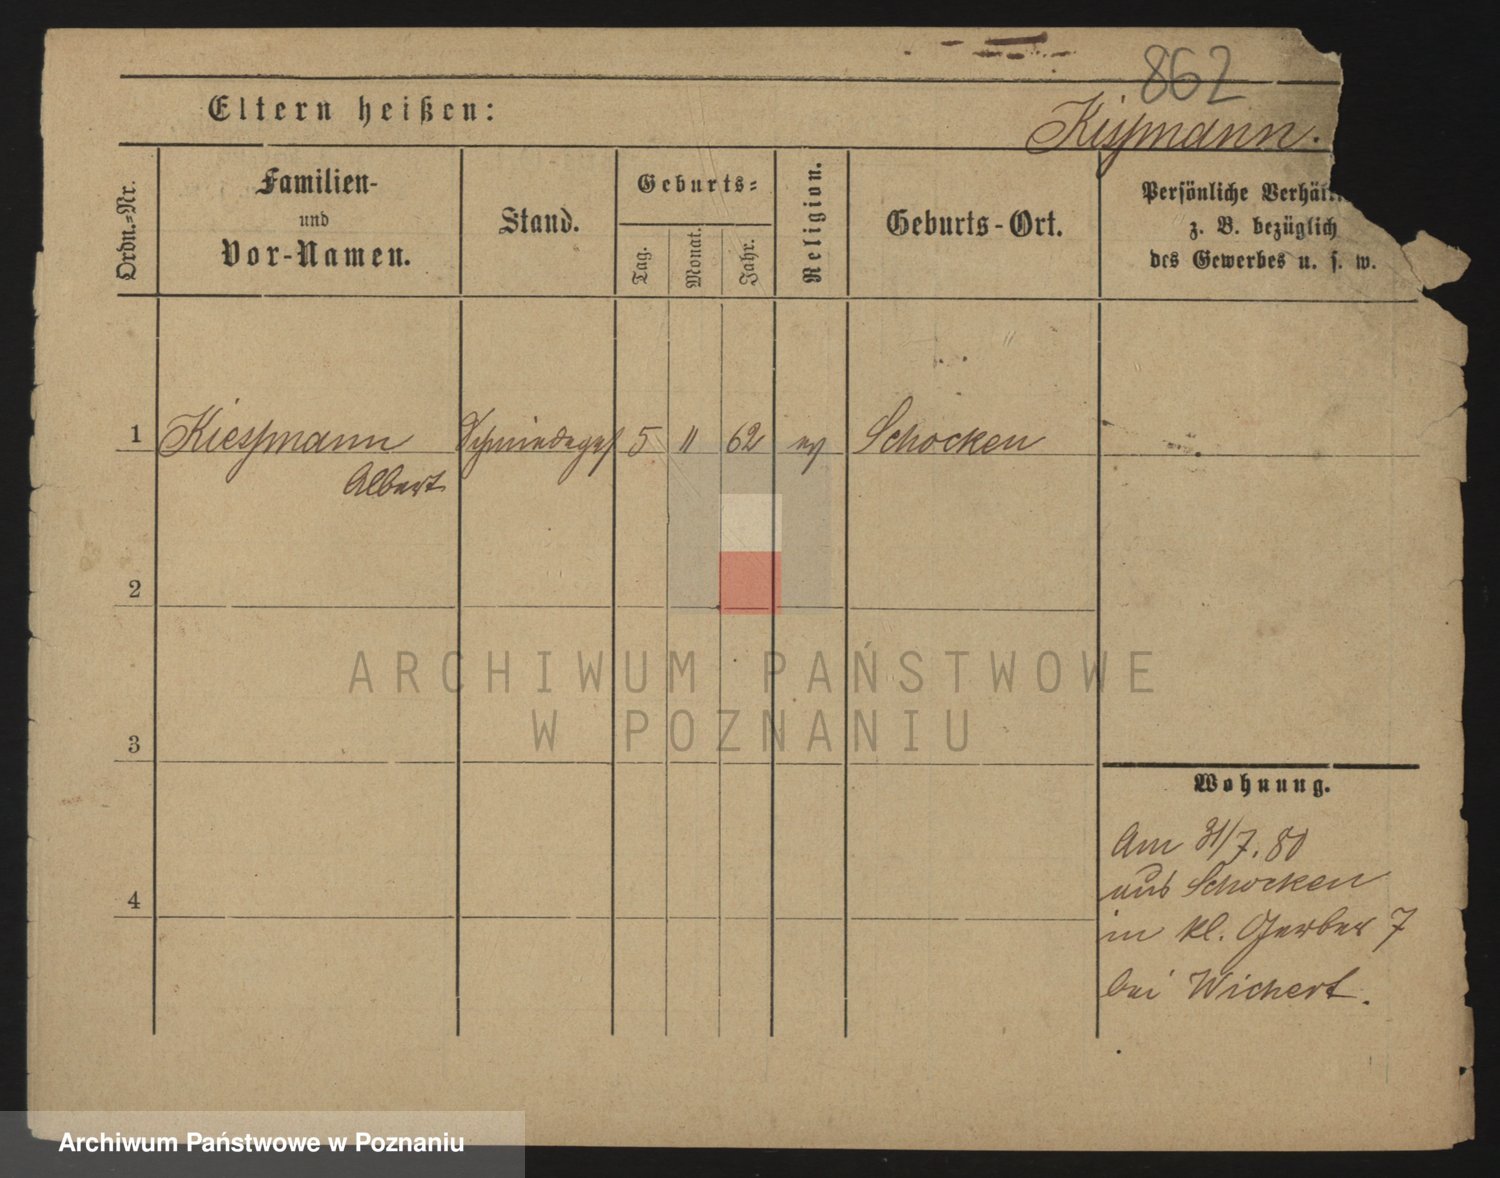 862
Eltern heißen:
Kißmann.
Ordn.-Nr.
Familien-
und
Vor-Namen.
Stand.
Geburts-
Tag.
Monat.
Jahr.
Religion.
Geburts-Ort.
Persönliche Verhält
z. B. bezüglich
des Gewerbes u. s. w.
1 Kießmann Schmiedeges 5 11 62 ev Schocken
Albert
2
3
4
Wohnung.
Am 31/7. 80
aus Schocken
in kl. Gerber 7
bei Wichert.
ARCHIWUM PAŃSTWOWE
W POZNANIU
Archiwum Państwowe w Poznaniu